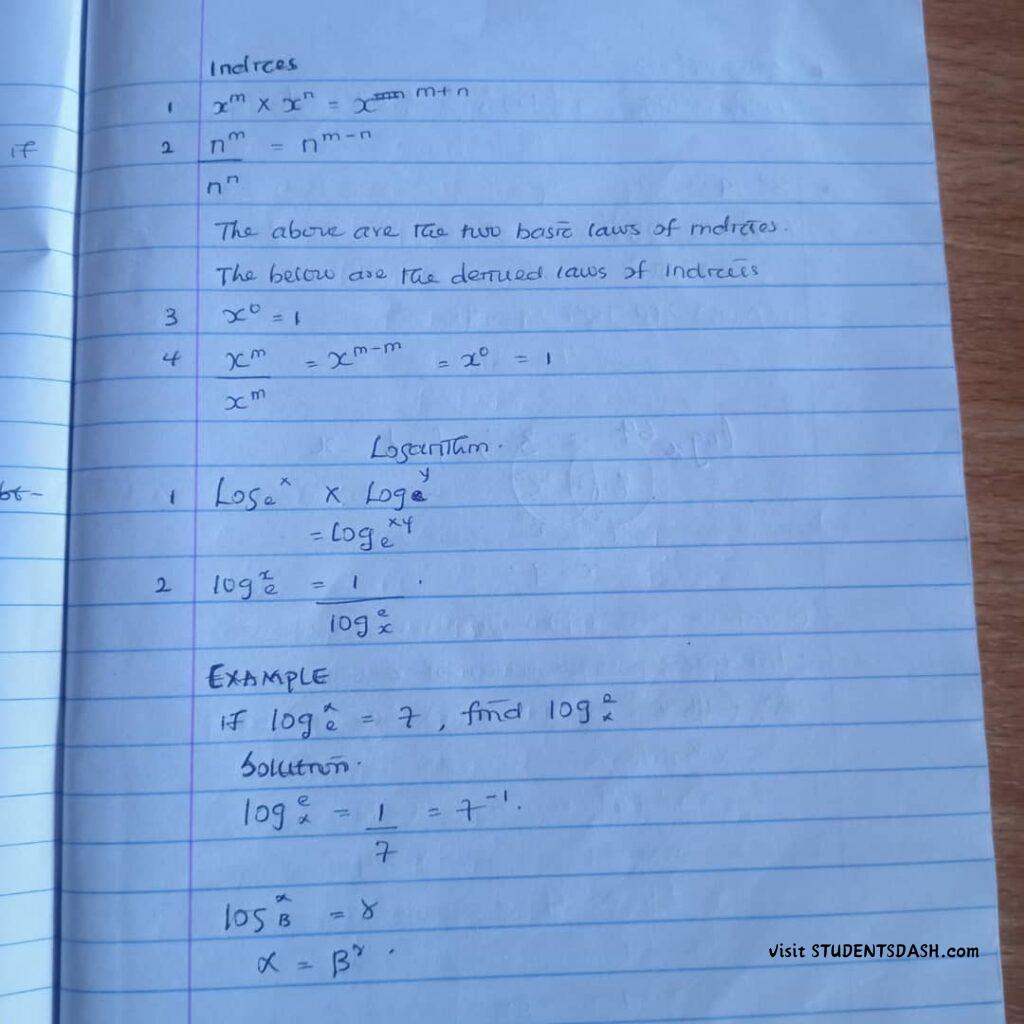 Indices
1 x^m × x^n = x^m+n
if
2 n^m = n^m-n
n^n
The above are the two basic laws of indicies.
The below are the derived laws of Indicies
3 x^0 = 1
4 x^m = x^m-m = x^0 = 1
x^m
Logarithm.
1 Log_e^x × Log_e^y
= Log_e^xy
2 log_e^x = 1 .
log_x^e
EXAMPLE
If log_e^x = 7, find log_x^e
Solution.
log_x^e = 1 = 7^-1.
7
log_β^α = γ
α = β^γ .
visit STUDENTSDASH.com